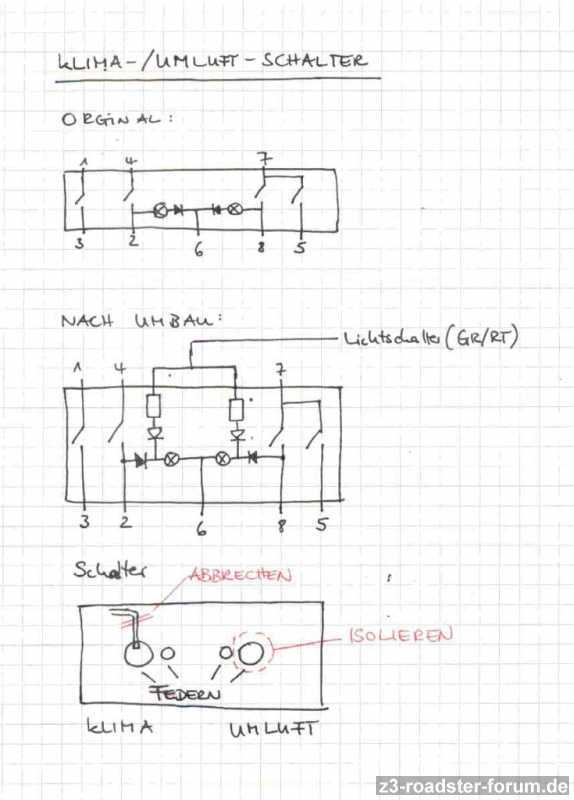 KLIMA-/UMLUFT-SCHALTER
ORGINAL:
1 4 7
3 2 6 8 5
NACH UMBAU:
Lichtschalter (GR/RT)
1 4 7
3 2 6 8 5
Schalter
ABBRECHEN
ISOLIEREN
FEDERN
KLIMA UMLUFT
z3-roadster-forum.de